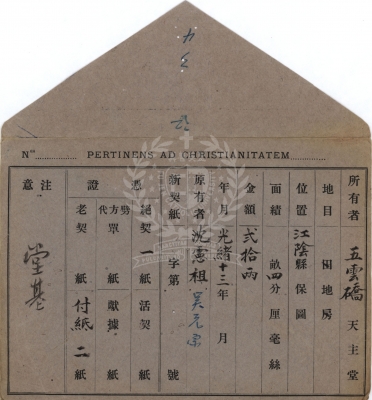 Nᵒˢ............ PERTINENS AD CHRISTIANITATEM............
所有者 五雲橋 天主堂
地目 田地房
位置 江陰縣 保 圖
面積 畝四分 厘 毫 絲
金額 弍拾両
年月 光緒十三年 月
原有者 沈憲祖 吴元
新契紙 字第 號
憑證
絕契 一 紙 活契 紙
方單 紙 獻據 紙
老契 紙 付紙 二 紙
注意 堂基